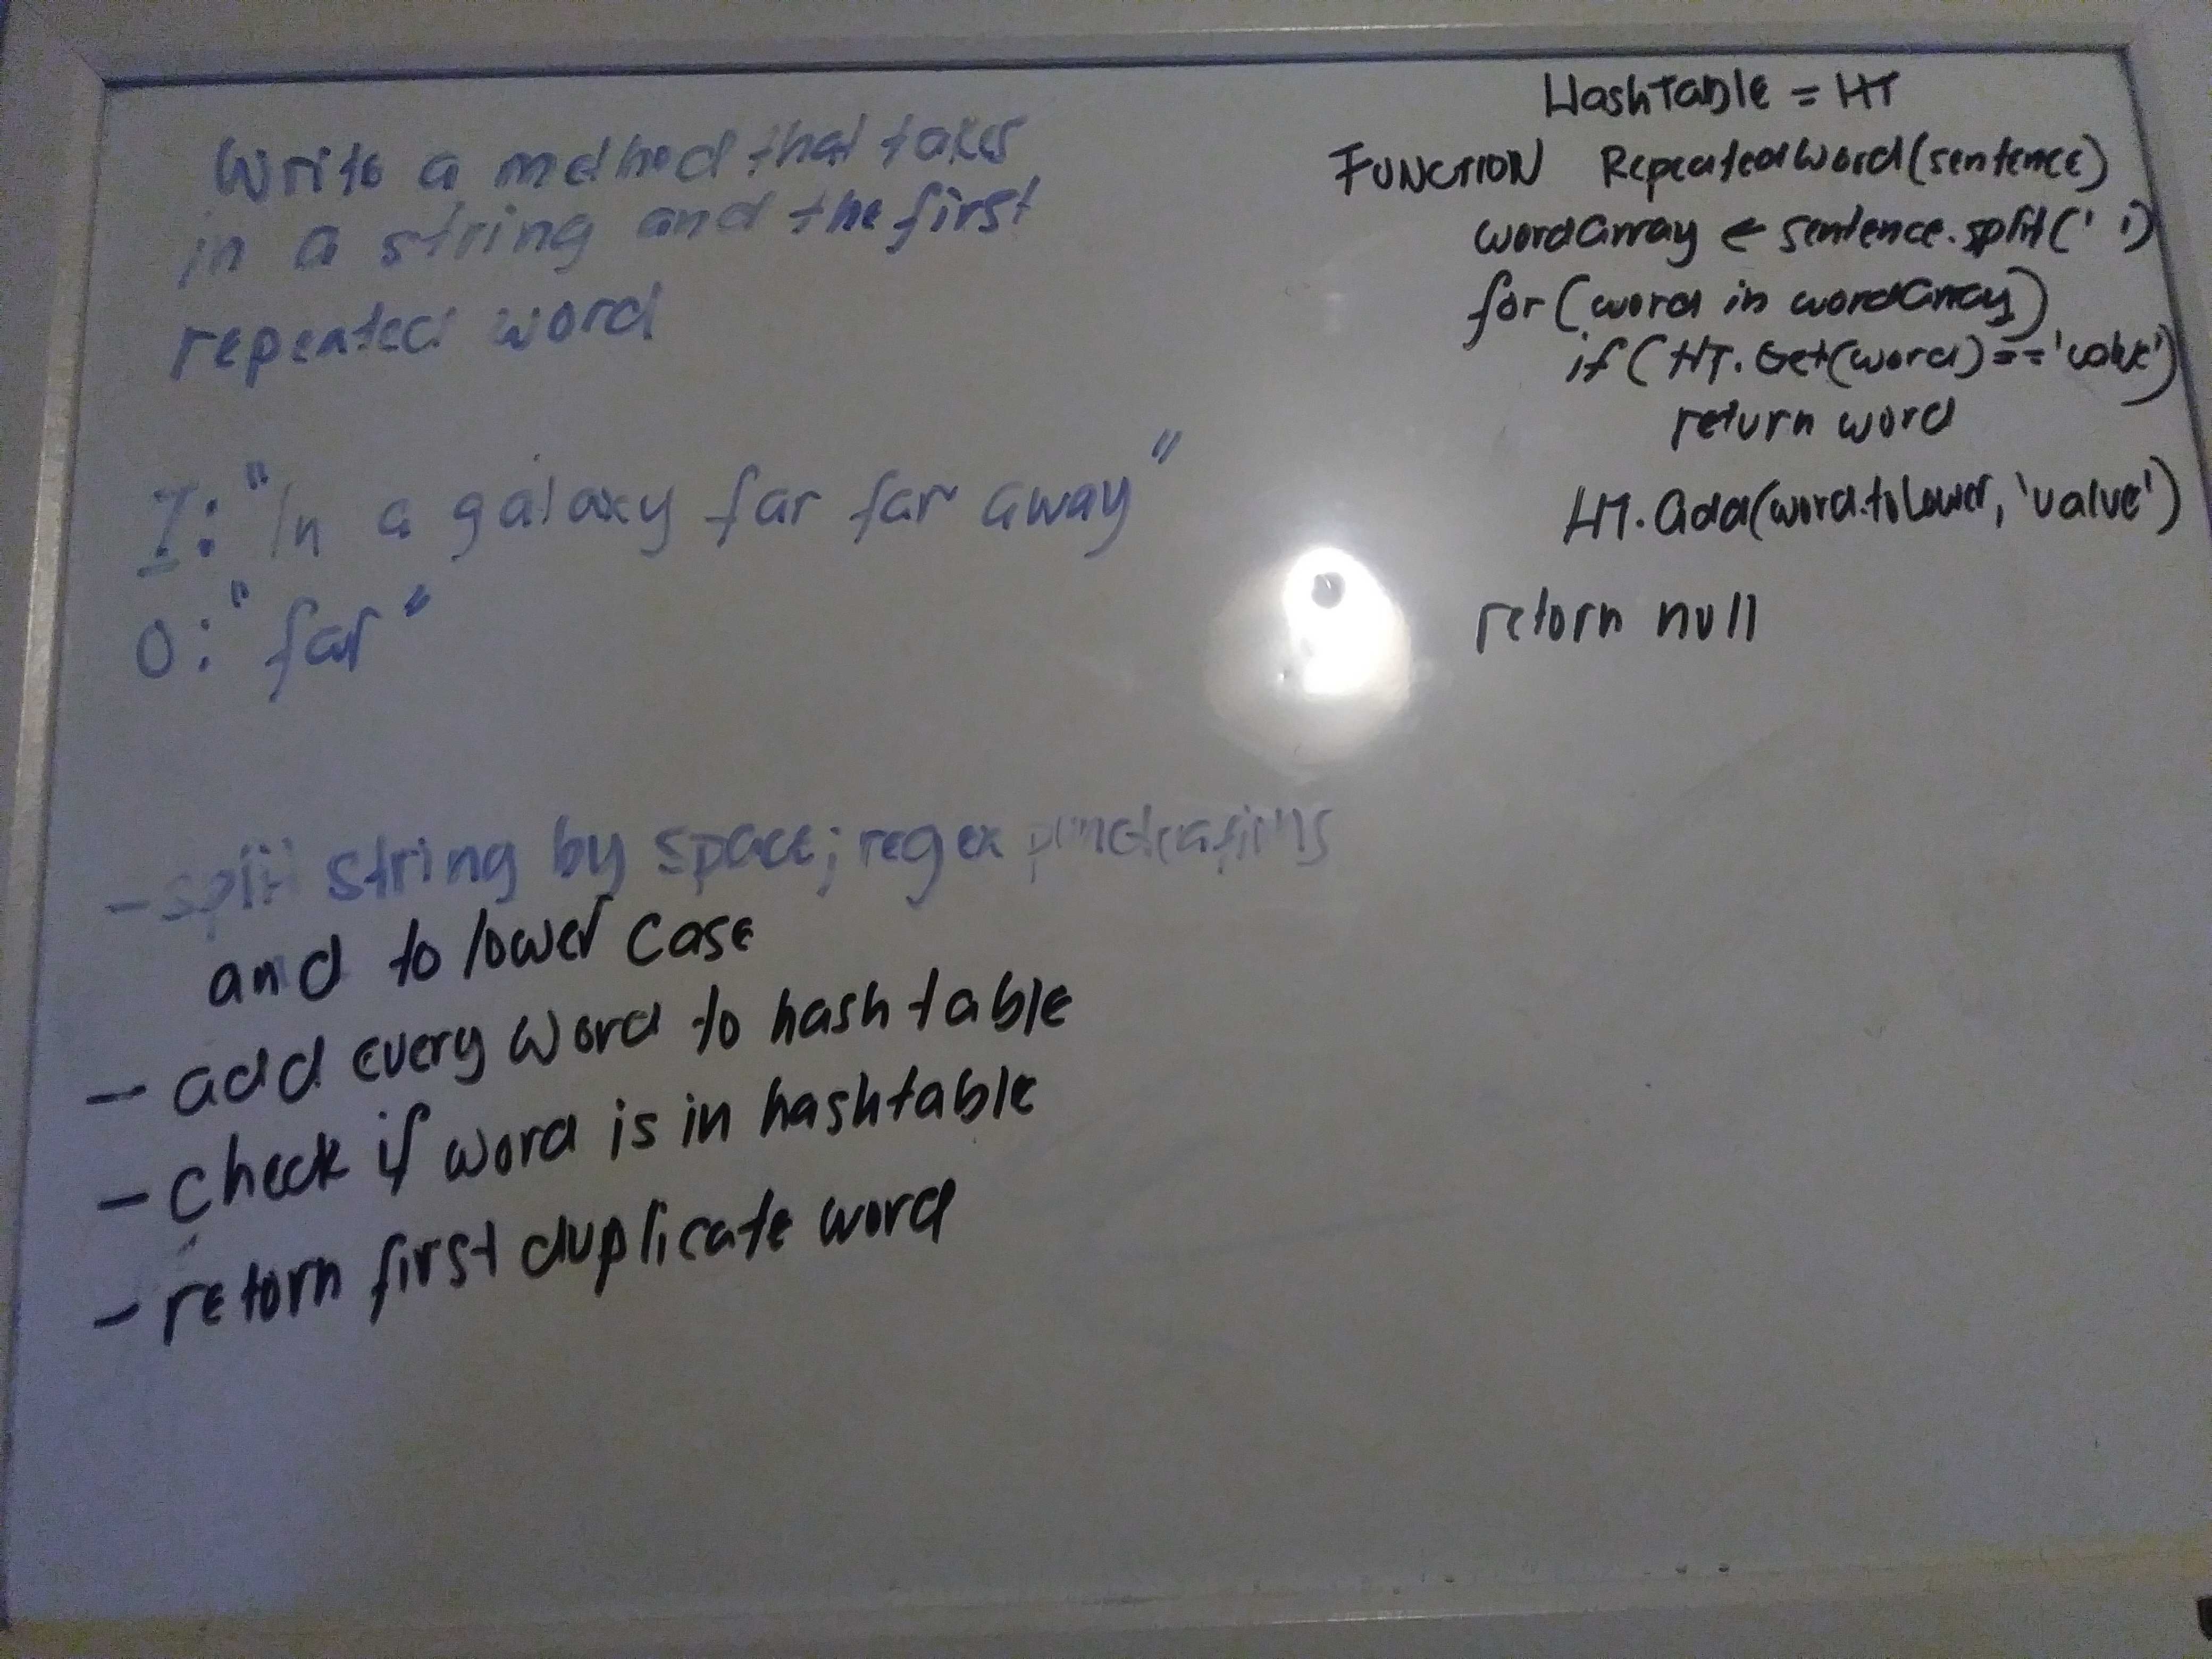 Write a method that takes
in a string and the first
repeated word
I: "In a galaxy far far away"
O: "far"
- split string by space; regex punctuations
and to lower case
- add every word to hashtable
- check if word is in hashtable
- return first duplicate word
HashTable = HT
FUNCTION RepeatedWord(sentence)
wordArray ← sentence.split(' ')
for (word in wordArray)
if (HT.Get(word) == 'value')
return word
HT.Add(word.toLower, 'value')
return null